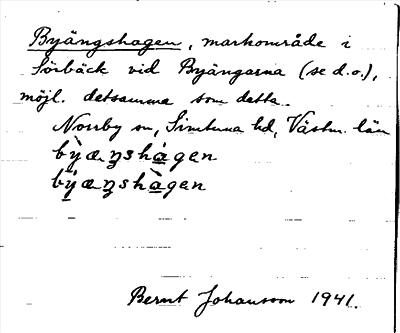 Byängshagen, markområde i
Sörbäck vid Byängarna (se d.o.),
möjl. detsamma som detta.
Norrby sn, Simtuna hd, Västm. län
bỳ̲æŋshá̲gen
bý̲æŋshà̲gen
Bernt Johansson 1941.